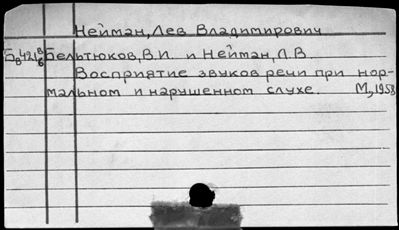 Нейман, Лев Владимирович
Бельтюков, В.И. и Нейман, Л.В.
Восприятие звуков речи при нор-
мальном и нарушенном слухе. М., 1958